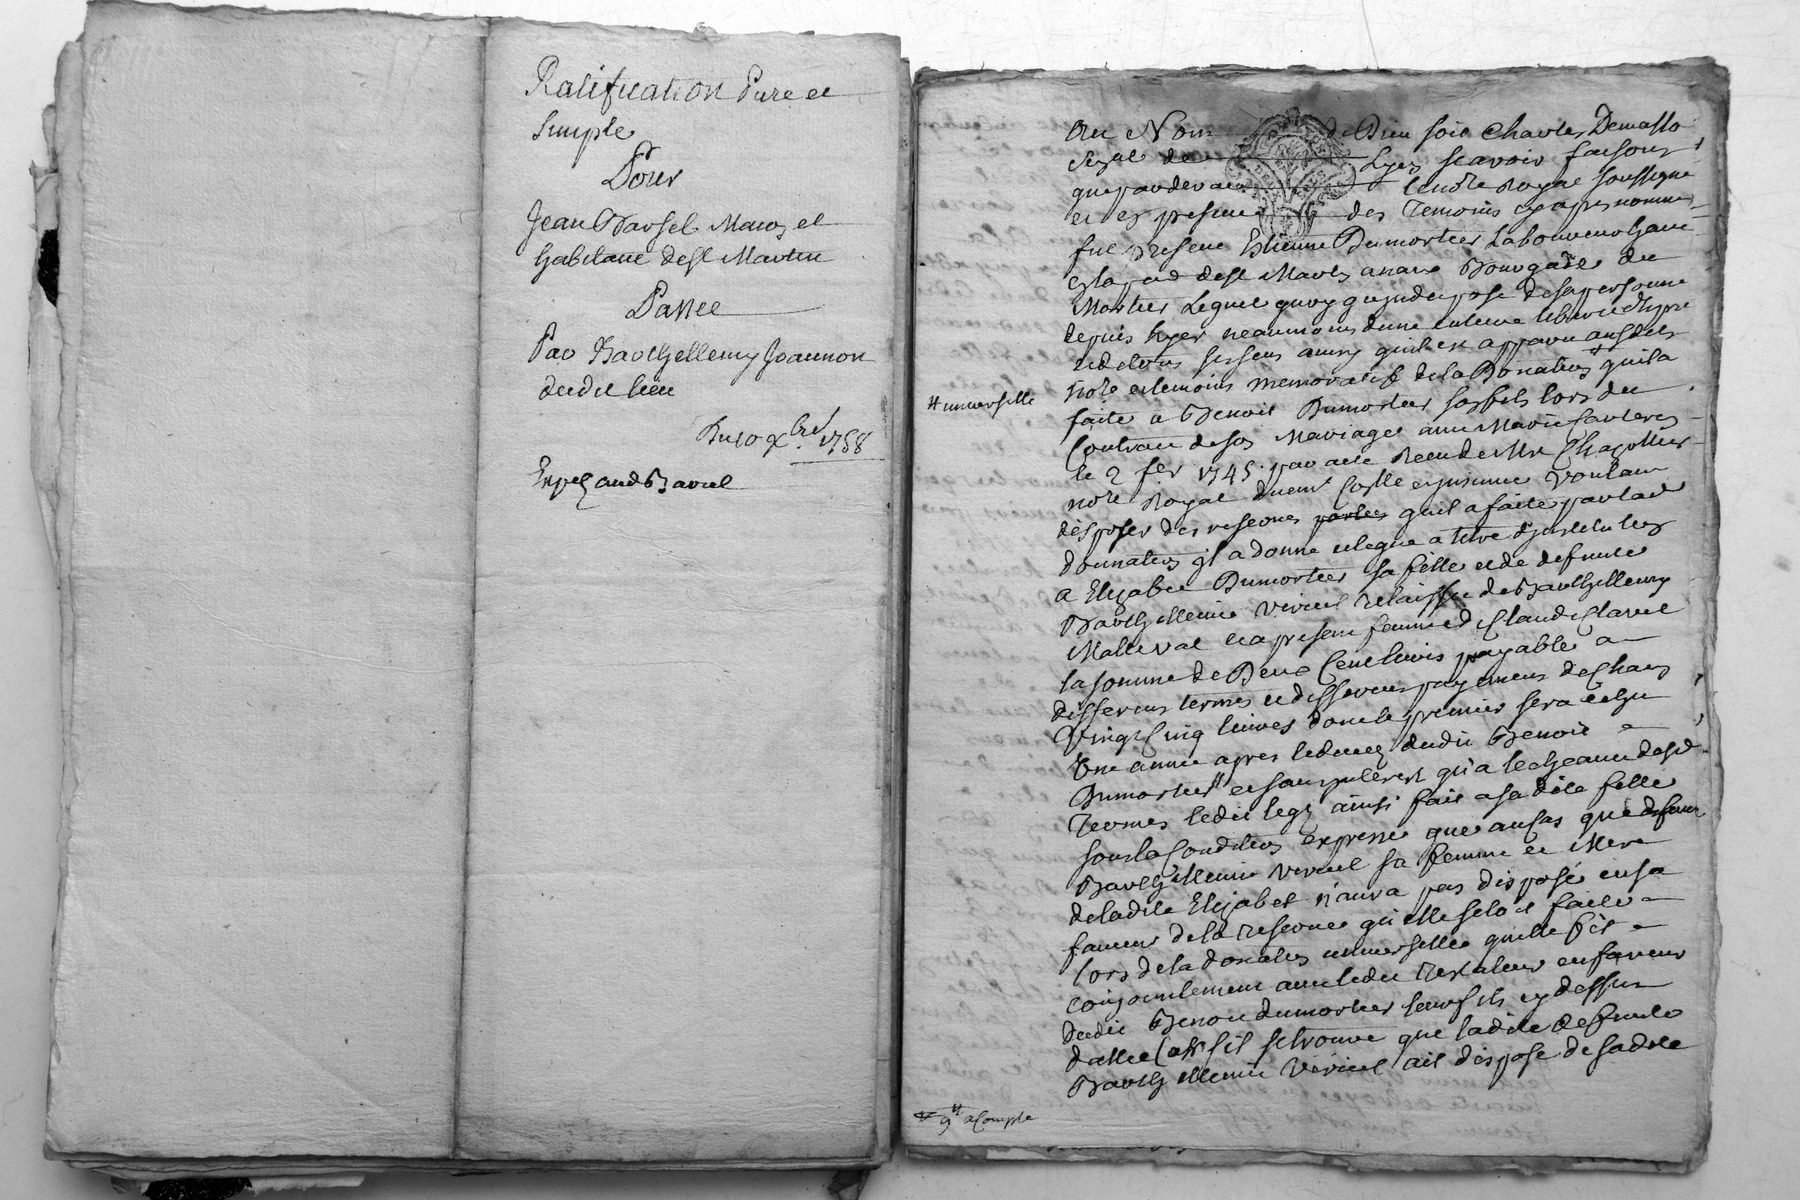 Ratification Pure et
Simple
Pour
Jean Marₛ et
habitant de St Martin
Passée
Par Barthellemy Joannon
dudit lieu
Du 10 xbre 1758
Expel and Bavul
Au Nom de Dieu soit Charles Demasso
de Lyon scavoir faisons
que pardevant le notre Royal soussigne
et en presence des Temoins cy apres nommes
fut present Estienne Dumortier Laboureur
de St Martin Bourgade du
Mortier Lequel quoy qu'indispose de sa personne
depuis hyer neanmoins dune entiere liberté
de tous ses sens ainsy quil est apparu ausdits
notre et temoins memoratif de la Donation quil a
# universelle
faite a Benoit Dumortier son fils lors du
Contract de son Mariage avec Marie
le 2 fer 1745 par acte Recu de Me Chazottier
notre Royal voulant
disposer des reserves quil a faite par lad
donnation il a donne et legue a titre d'institution
a Elizabet Dumortier sa fille et de deffunte
Barthellemie Viricel relaissee de Barthellemy
Malleval et a present femme de Claude Clavel
la somme de Deux Cent livres payable a
differens termes et differens payemens de Chacun
Vingt Cinq livres dont le premier sera echu
Une année apres le deces dudit Benoit
Dumortier et sans interest qu'a lecheance desd
Termes ledit legs ainsi fait a sa dite fille
sous la Condition expresse que au Cas que deffunte
Barthellemie Viricel sa femme et Mere
de ladite Elizabet n'aura pas disposé en sa
faveur de la reserve qu'elle s'etoit faite
lors de la donation universelle quelle fit
conjointement avec ledit Testateur en faveur
dudit Benoit dumortier leur fils cy dessus
datée Car sil se trouve que ladite deffunte
Barthellemie Viricel ait dispose de sa dite
# a Compte